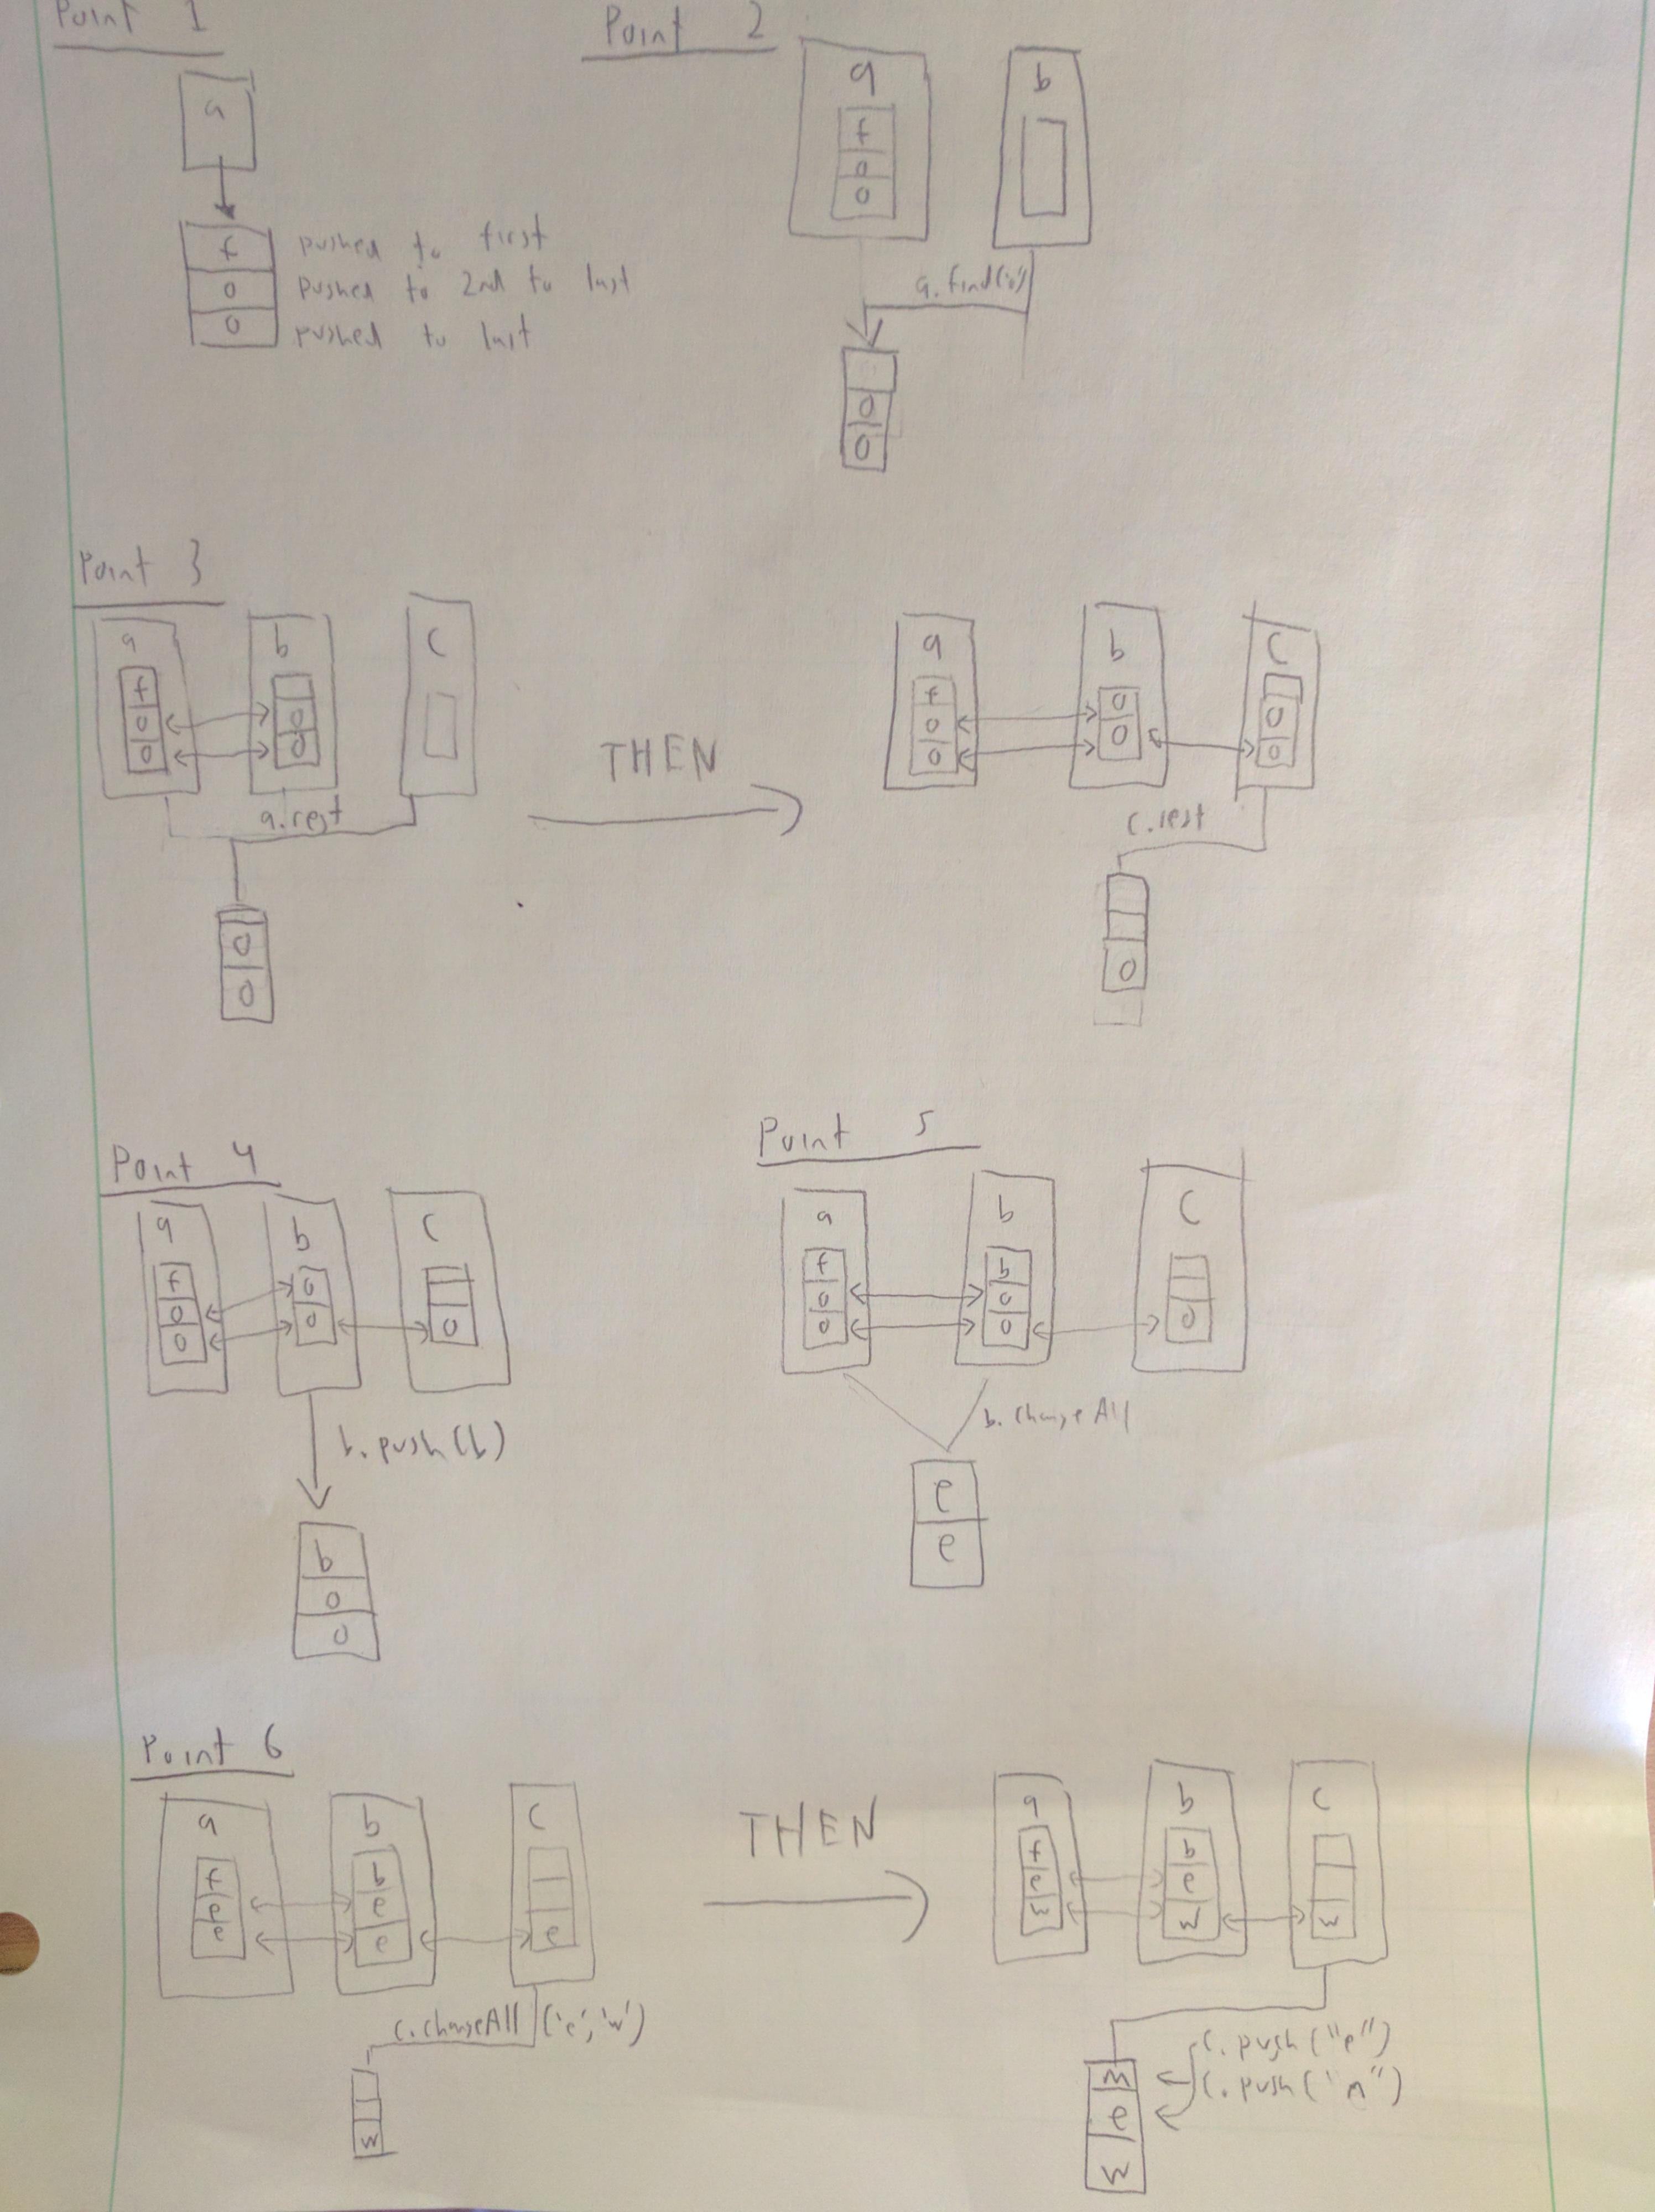 Point 1
a
f pushed to first
o pushed to 2nd to last
o pushed to last
Point 2
a b
f
o
o
a.find('o')
o
o
Point 3
a b c
f
o o
o o
a.rest
o
o
THEN
a b c
f
o o o
o o o
c.rest
o
Point 4
a b c
f
o o
o o o
b.push(b)
b
o
o
Point 5
a b c
f b
o o
o o o
b.changeAll
e
e
Point 6
a b c
f b
e e
e e e
c.changeAll ('e','w')
w
THEN
a b c
f b
e e
w w w
c.push("e")
e
w